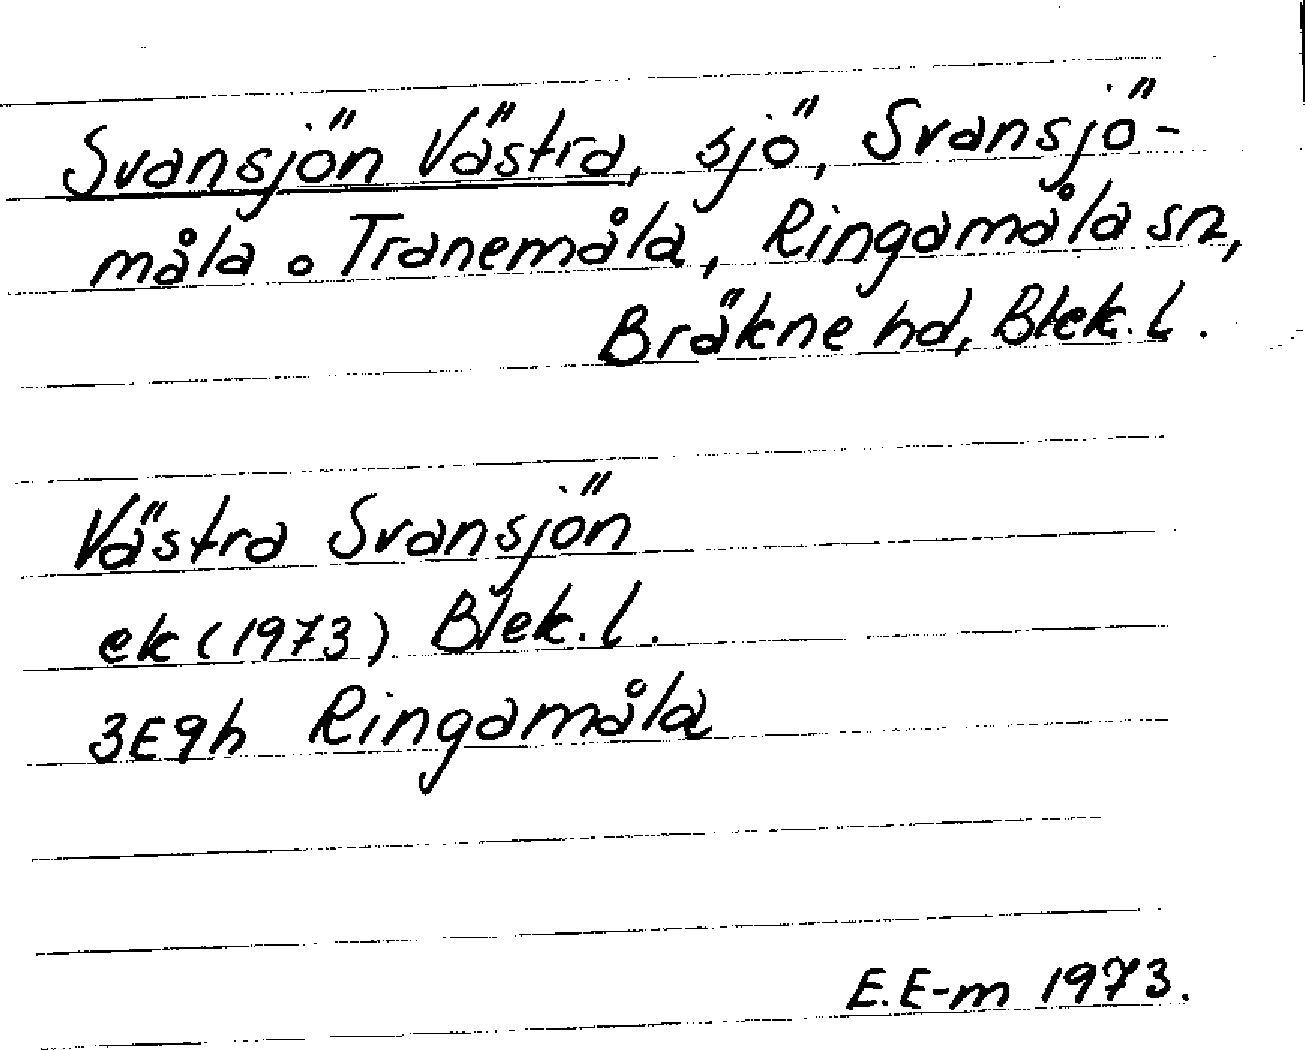 Svansjön Västra, sjö, Svansjö-
måla o Tranemåla, Ringamåla sn,
Bräkne hd, Blek. l.
Västra Svansjön
ek (1973) Blek. l.
3E9h Ringamåla
E. E-m 1973.